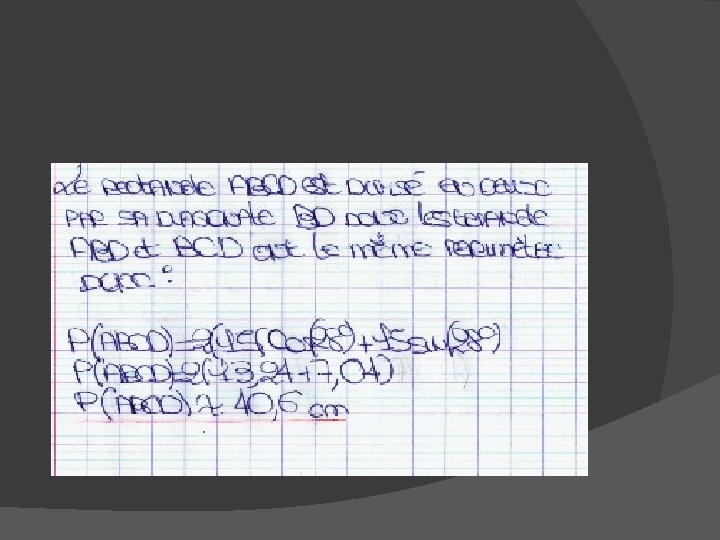 Le rectangle ABCD est divisé en deux
par sa diagonale BD donc les triangle
ABD et BCD ont le même périmètre
Donc :
P(ABCD)=2(15(Cos(28°)+15sin(28°)
P(ABCD)=2(13,24+7,04)
P(ABCD)≈ 40,6 cm